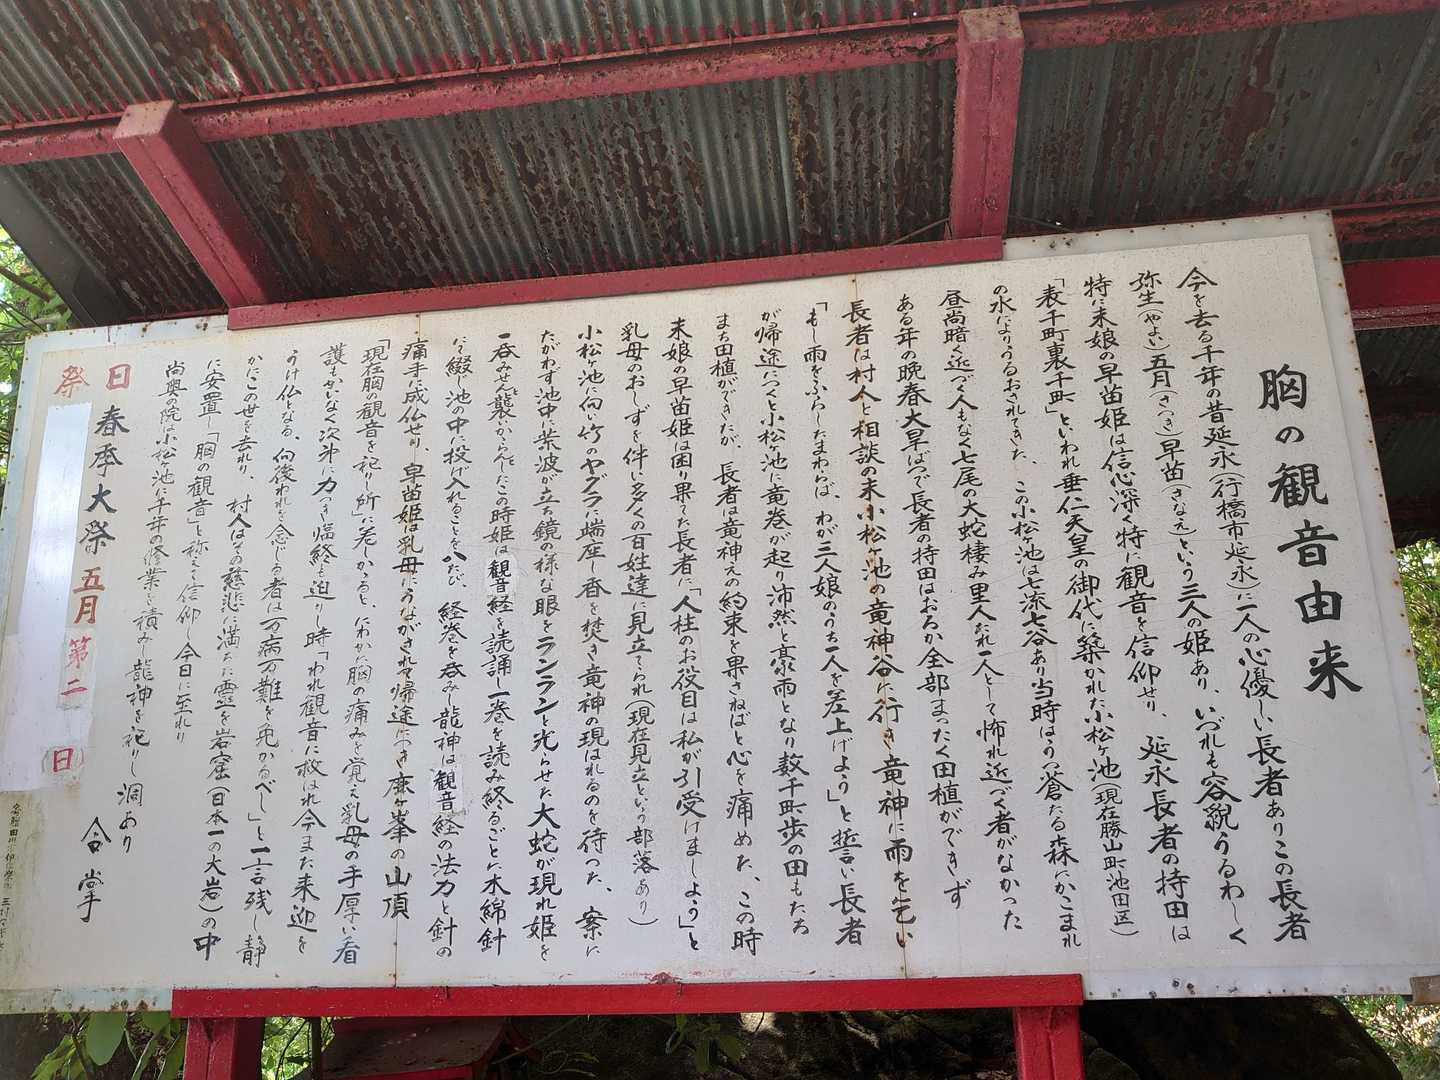 胸の観音由来
今を去る千年の昔延永(行橋市延永)に一人の心優しい長者ありこの長者
弥生(やよい)五月(さつき)早苗(さなえ)という三人の姫あり、いづれも容貌うるわしく
特に末娘の早苗姫は信心深く特に観音を信仰せり、延永長者の持田は
「表千町裏千町」といわれ垂仁天皇の御代に築かれた小松ヶ池(現在勝山町池田区)
の水によりうるおされてきた、この小松ヶ池は七流七谷あり当時はうっ蒼たる森にかこまれ
昼尚暗く近づく人もなく七尾の大蛇棲み里人だれ一人として怖れ近づく者がなかった
ある年の晩春大旱ばつで長者の持田はおろか全部まったく田植ができず
長者は村人と相談の末小松ヶ池の竜神谷に行き竜神に雨を乞い
「もし雨をふらしたまわらば、わが三人娘のうち一人を差上げよう」と誓い長者
が帰途につくと小松ヶ池に竜巻が起り沛然と豪雨となり数千町歩の田もたち
まち田植ができたが、長者は竜神えの約束を果さねばと心を痛めた、この時
末娘の早苗姫は困り果てた長者に「人柱のお役目は私が引受けましよう」と
乳母のおしずを伴い多くの百姓達に見立てられ(現在見立という部落あり)
小松ヶ池に向い竹のヤグラに端座し香を焚き竜神の現はれるのを待つた、案に
たがわず池中に紫波が立ち鏡の様な眼をランランと光らせた大蛇が現れ姫を
一呑みせんと襲いかからんとしたこの時姫は観音経を読誦し一巻を読み終るごとに木綿針
にて綴じ池の中に投げ入れることを八たび、経巻を呑みし龍神は観音経の法力と針の
痛手に成仏せり、早苗姫は乳母にうながされて帰途につき鹿ヶ峯の山頂
「現在胸の観音を祀りし所」に差しかかると、にわかに胸の痛みを覚え乳母の手厚い看
護もかいなく次第に力つき臨終も迫りし時「われ観音に救はれ今また来迎を
うけ仏となる、向後われを念じる者は万病万難を免かるべし」と一言残し静
かにこの世を去れり、村人はその慈悲に満ちた霊を岩窟(日本一の大岩)の中
に安置し「胸の観音」と称えて信仰し今日に至れり
尚奥の院は小松ヶ池に千年の修業を積みし龍神を祀りし洞あり
合掌
春季大祭 五月第二日
祭日